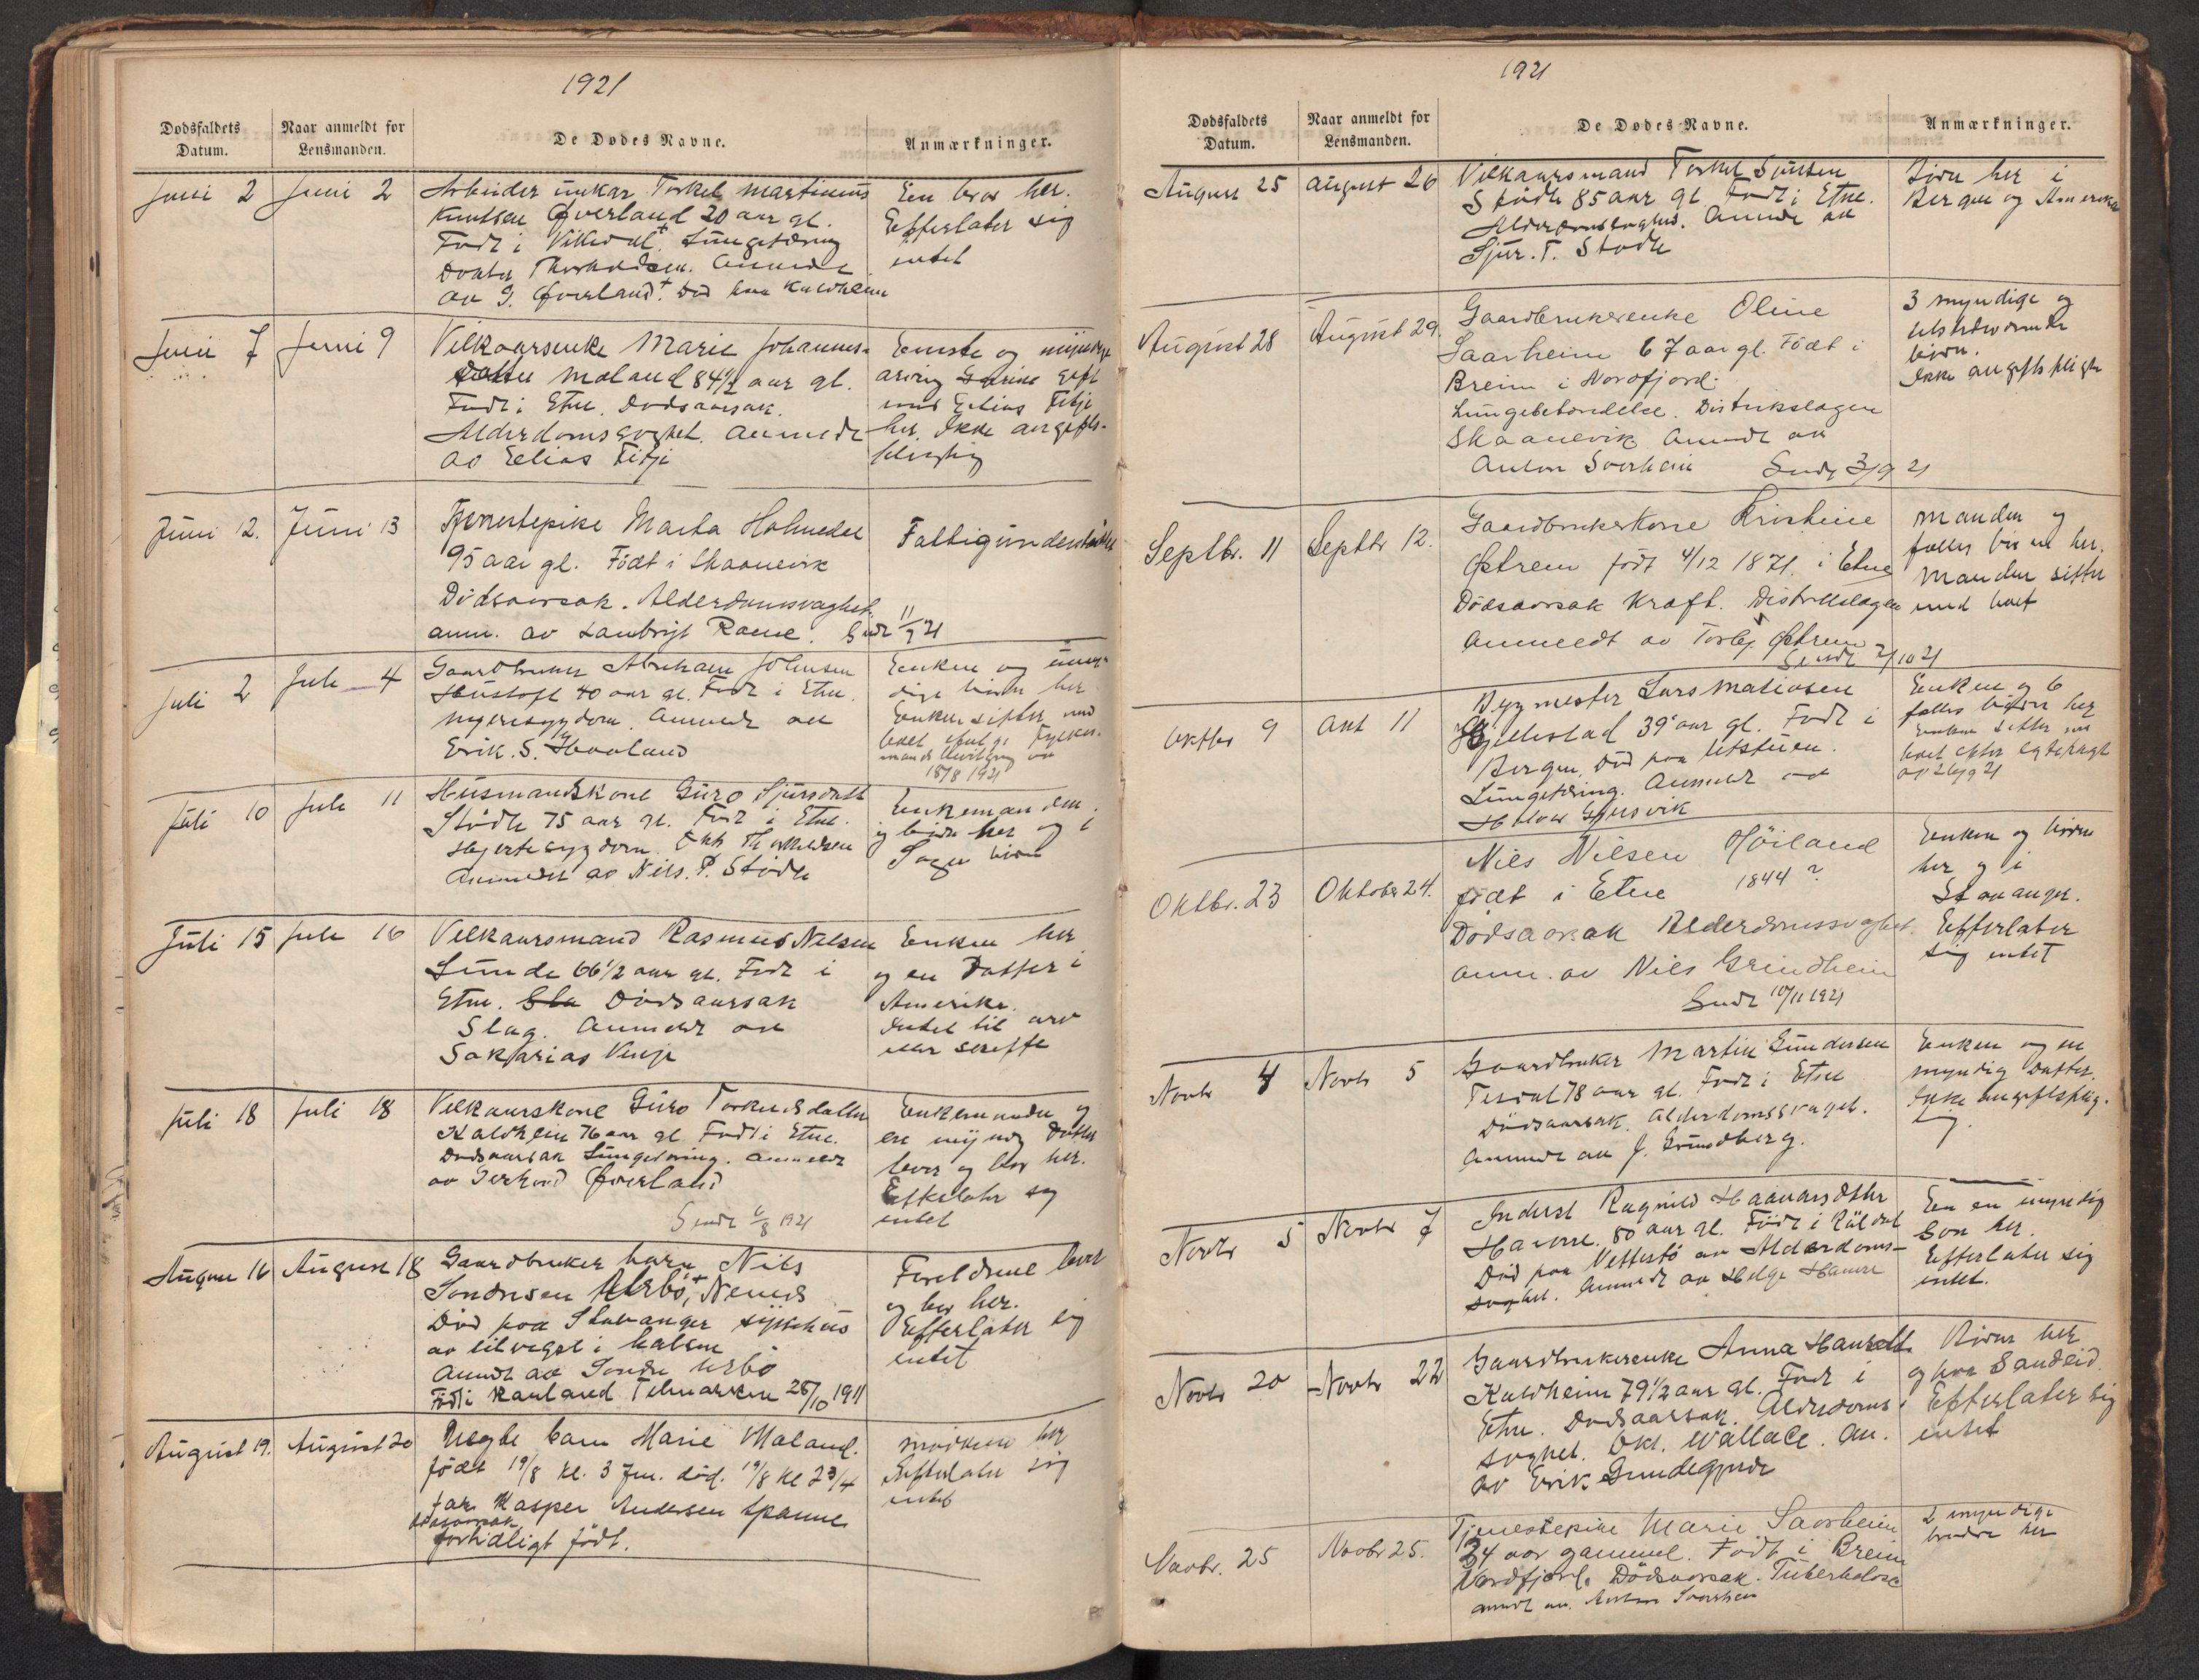 1921
Dødsfaldets
Datum.
Naar anmeldt for
Lensmanden.
De Dødes Navne.
Anmærkninger.
Juni 2
Juni 2
Arbeider unkar Torkel Martinius
Knutsen Øverland 20 aar gl.
Født i Vikedal + Lungetæring
Doktor Thorkildsen. Anmeldt
av G. Øverland + Død paa Kaldheim
En bror her.
Efterlater sig
intet
Juni 7
Juni 9
Vilkaarsenke Marie Johannes-
datter Møland 84½ aar gl.
Født i Etne. Dødsaarsak.
Alderdomssvaghet. Anmeldt
av Elias Fitje
Eneste og myndige
arving gift
med Elias Fitje
her. Ikke avgifts-
pligtig
Juni 12.
Juni 13
Tjenestepike Marta Holmedal
95 aar gl. Født i Skaanevik
Dødsaarsak. Alderdomsvaghet.
anm. av Lambrigt Rame. Sendt 11/7 21
Fattigunderstøttet
Juli 2
Juli 4
Gaardbruker Abraham Johnsen
Hustoft 40 aar gl. Født i Etne.
Nyresygdom. Anmeldt av
Erik. S. Haaland
Enken og umyn-
dige børn her
Enken sitter med
boet ifølge Fylkes-
mands bevilgning av
18/8 1921
Juli 10
Juli 11
Husmandskone Guro Sjursdatt
Stødle 75 aar gl. Født i Etne.
Hjertesygdom. Dokt Thorkildsen
Anmeldt av Nils. P. Stødle
Enkemanden
og børn her og i
Juli 15
Juli 16
Vilkaarsmand Rasmus Nilsen
Sunde 66½ aar gl. Født i
Etne. Sla Dødsaarsak
Slag. Anmeldt av
Sakarias Vinje
Enken her
og en Datter i
Amerika.
Intet til arv
eller skifte
Juli 18
Juli 18
Vilkaarskone Guro Torkildsdatter
Kaldheim 76 aar gl. Født i Etne.
Dødsaarsak Lungetæring. Anmeldt
av Gerhard Øverland
Sendt 6/8 1921
Enkemanden og
en myndig Datter
lever og bor her.
Efterlater sig
intet
August 16
August 18
Gaardbruker barn Nils
Søndresen Urbø,
Død paa Stavanger sykehus
av i halsen
Anmdt av Søndre Urbø
Født i Rauland Telemarken 25/10 1911
Foreldrene lever
og bor her.
Efterlater sig
intet
August 19.
August 20
Uegte barn Marie Møland.
født 19/8 kl. 3 fm. død. 19/8 kl 2 3/4
far Kasper Andersen Spanne
dødsaarsak
fortidligt født.
moderen her
Efterlater sig
intet
1921
Dødsfaldets
Datum.
Naar anmeldt for
Lensmanden.
De Dødes Navne.
Anmærkninger.
August 25
August 26
Vilkaarsmand Torkel Sjursen
Stødle 85 aar gl. Født i Etne.
Alderdomssvaghed. Anmeldt av
Sjur. T. Stødle
Børn her i
Bergen og Amerika
August 28
August 29.
Gaardbrukerenke Oline
Saarheim 67 aar gl. Født i
Breim i Nordfjord.
Lungebetændelse. Distriktslægen
Skaanevik Anmeldt av
Anton Saarheim Sendt 3/9 21
3 myndige og
tilstedeværende
børn.
Ikke avgiftspligtig
Septbr. 11
Septbr 12.
Gaardbrukerkone Kristine
Østrem født 4/12 1871. i Etne
Dødsaarsak Kræft. Distriktslægen
Anmeldt av Torbj Østrem
Sendt 2/10 21
Manden og
fælles børn her.
Manden sitter
med boet
Oktbr 9
Okt 11
Bygmester Lars Matiasen
Gjillestad 39 aar gl. Født i
Bergen. Død paa Utstuen.
Lungetæring. Anmeldt av
Halvor Gjersvik
Enken og 6
fælles børn her
Enken sitter med
boet efter egtepagt
av 26/9 21
Oktbr. 23
Oktober 24.
Nils Nilsen Høiland
født i Etne 1844 ?
Dødsaarsak Alderdomssvaghet.
anm. av Nils Grindheim
Sendt 10/11 1921
Enken og børn
her og i
Stavanger.
Efterlater
sig intet
Novbr 4
Novbr 5
Gaardbruker Martin Gundersen
Tesdal 78 aar gl. Født i Etne
Dødsaarsak. Alderdomssvaghet.
Anmeldt av J. Grindberg.
Enken og en
myndig Datter.
Ikke avgiftsplig-
tig.
Novbr 5
Novbr 7
Inderst Ragnild Haavarsdatter
Hamre. 80 aar gl. Født i Røldal
Død paa Vettestø av Alderdoms-
svaghet. Anmeldt av Helge Hamre
En en myndig
Søn her.
Efterlater sig
intet.
Novbr 20
Novbr 22
Gaardbrukerenke Anna
Kaldheim 79½ aar gl. Født i
Etne. Dødsaarsak. Alderdoms-
svaghet. Dkt. Wallace. An.
av Erik Grindegjerde
Børn her
og paa Sandeid
Efterlater sig
intet
Novbr. 25
Novbr 25.
Tjenestepike Marie Saarheim
34 aar gammel. Født i Breim
Nordfjord. Dødsaarsak. Tuberkulose
anmdt av. Anton Saarheim
2 myndige
brødre her